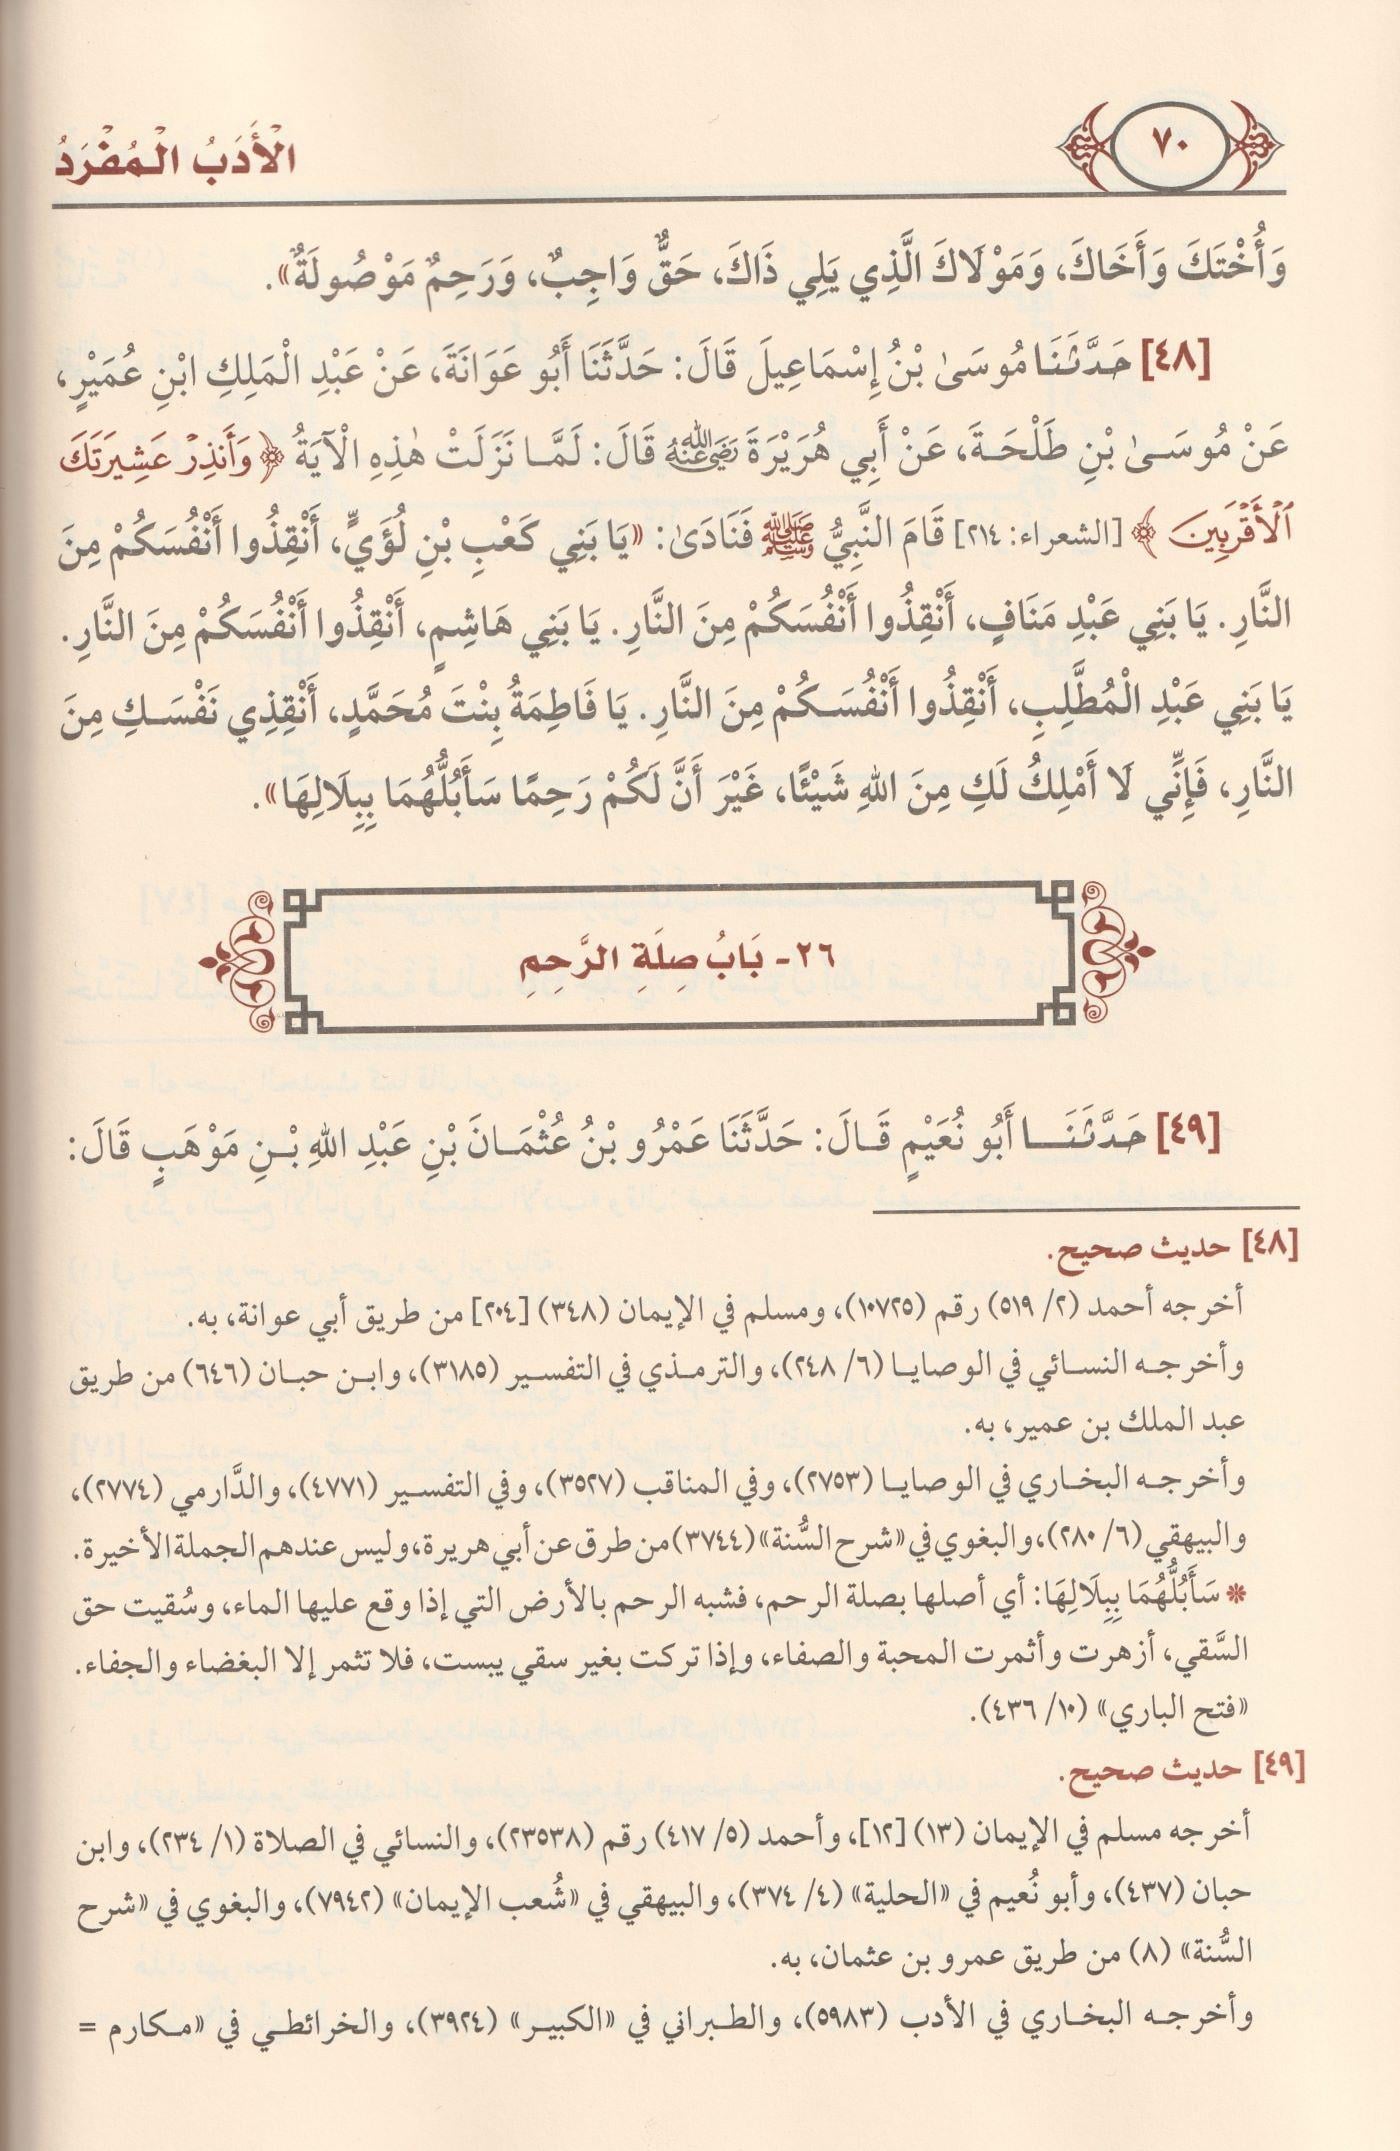 ٧٠
الْأَدَبُ الْمُفْرَدُ
وَأُخْتَكَ وَأَخَاكَ، وَمَوْلَاكَ الَّذِي يَلِي ذَاكَ، حَقٌّ وَاجِبٌ، وَرَحِمٌ مَوْصُولَةٌ».
[٤٨] حَدَّثَنَا مُوسَىٰ بْنُ إِسْمَاعِيلَ قَالَ: حَدَّثَنَا أَبُو عَوَانَةَ، عَنْ عَبْدِ الْمَلِكِ ابْنِ عُمَيْرٍ،
عَنْ مُوسَىٰ بْنِ طَلْحَةَ، عَنْ أَبِي هُرَيْرَةَ رَضِيَ اللَّهُ عَنْهُ قَالَ: لَمَّا نَزَلَتْ هٰذِهِ الْآيَةُ ﴿وَأَنذِرْ عَشِيرَتَكَ
ٱلْأَقْرَبِينَ﴾ [الشعراء: ٢١٤] قَامَ النَّبِيُّ ﷺ فَنَادَىٰ: «يَا بَنِي كَعْبِ بْنِ لُؤَيٍّ، أَنْقِذُوا أَنْفُسَكُمْ مِنَ
النَّارِ. يَا بَنِي عَبْدِ مَنَافٍ، أَنْقِذُوا أَنْفُسَكُمْ مِنَ النَّارِ. يَا بَنِي هَاشِمٍ، أَنْقِذُوا أَنْفُسَكُمْ مِنَ النَّارِ.
يَا بَنِي عَبْدِ الْمُطَّلِبِ، أَنْقِذُوا أَنْفُسَكُمْ مِنَ النَّارِ. يَا فَاطِمَةُ بِنْتَ مُحَمَّدٍ، أَنْقِذِي نَفْسَكِ مِنَ
النَّارِ، فَإِنِّي لَا أَمْلِكُ لَكِ مِنَ اللهِ شَيْئًا، غَيْرَ أَنَّ لَكُمْ رَحِمًا سَأَبُلُّهُمَا بِبِلَالِهَا».
٢٦- بَابُ صِلَةِ الرَّحِمِ
[٤٩] حَدَّثَنَا أَبُو نُعَيْمٍ قَالَ: حَدَّثَنَا عَمْرُو بْنُ عُثْمَانَ بْنِ عَبْدِ اللهِ بْنِ مَوْهَبٍ قَالَ:
[٤٨] حديث صحيح.
أخرجه أحمد (٢/ ٥١٩) رقم (١٠٧٢٥)، ومسلم في الإيمان (٣٤٨) [٢٠٤] من طريق أبي عوانة، به.
وأخرجه النسائي في الوصايا (٦/ ٢٤٨)، والترمذي في التفسير (٣١٨٥)، وابن حبان (٦٤٦) من طريق
عبد الملك بن عمير، به.
وأخرجه البخاري في الوصايا (٢٧٥٣)، وفي المناقب (٣٥٢٧)، وفي التفسير (٤٧٧١)، والدَّارمي (٢٧٧٤)،
والبيهقي (٦/ ٢٨٠)، والبغوي في «شرح السُّنة» (٣٧٤٤) من طرق عن أبي هريرة، وليس عندهم الجملة الأخيرة.
* سَأَبُلُّهُمَا بِبِلَالِهَا: أي أصلها بصلة الرحم، فشبه الرحم بالأرض التي إذا وقع عليها الماء، وسُقيت حق
السَّقي، أزهرت وأثمرت المحبة والصفاء، وإذا تركت بغير سقي يبست، فلا تثمر إلا البغضاء والجفاء.
«فتح الباري» (١٠/ ٤٣٦).
[٤٩] حديث صحيح.
أخرجه مسلم في الإيمان (١٣) [١٢]، وأحمد (٥/ ٤١٧) رقم (٢٣٥٣٨)، والنسائي في الصلاة (١/ ٢٣٤)، وابن
حبان (٤٣٧)، وأبو نُعيم في «الحلية» (٤/ ٣٧٤)، والبيهقي في «شُعب الإيمان» (٧٩٤٢)، والبغوي في «شرح
السُّنة» (٨) من طريق عمرو بن عثمان، به.
وأخرجه البخاري في الأدب (٥٩٨٣)، والطبراني في «الكبير» (٣٩٢٤)، والخرائطي في «مكارم =